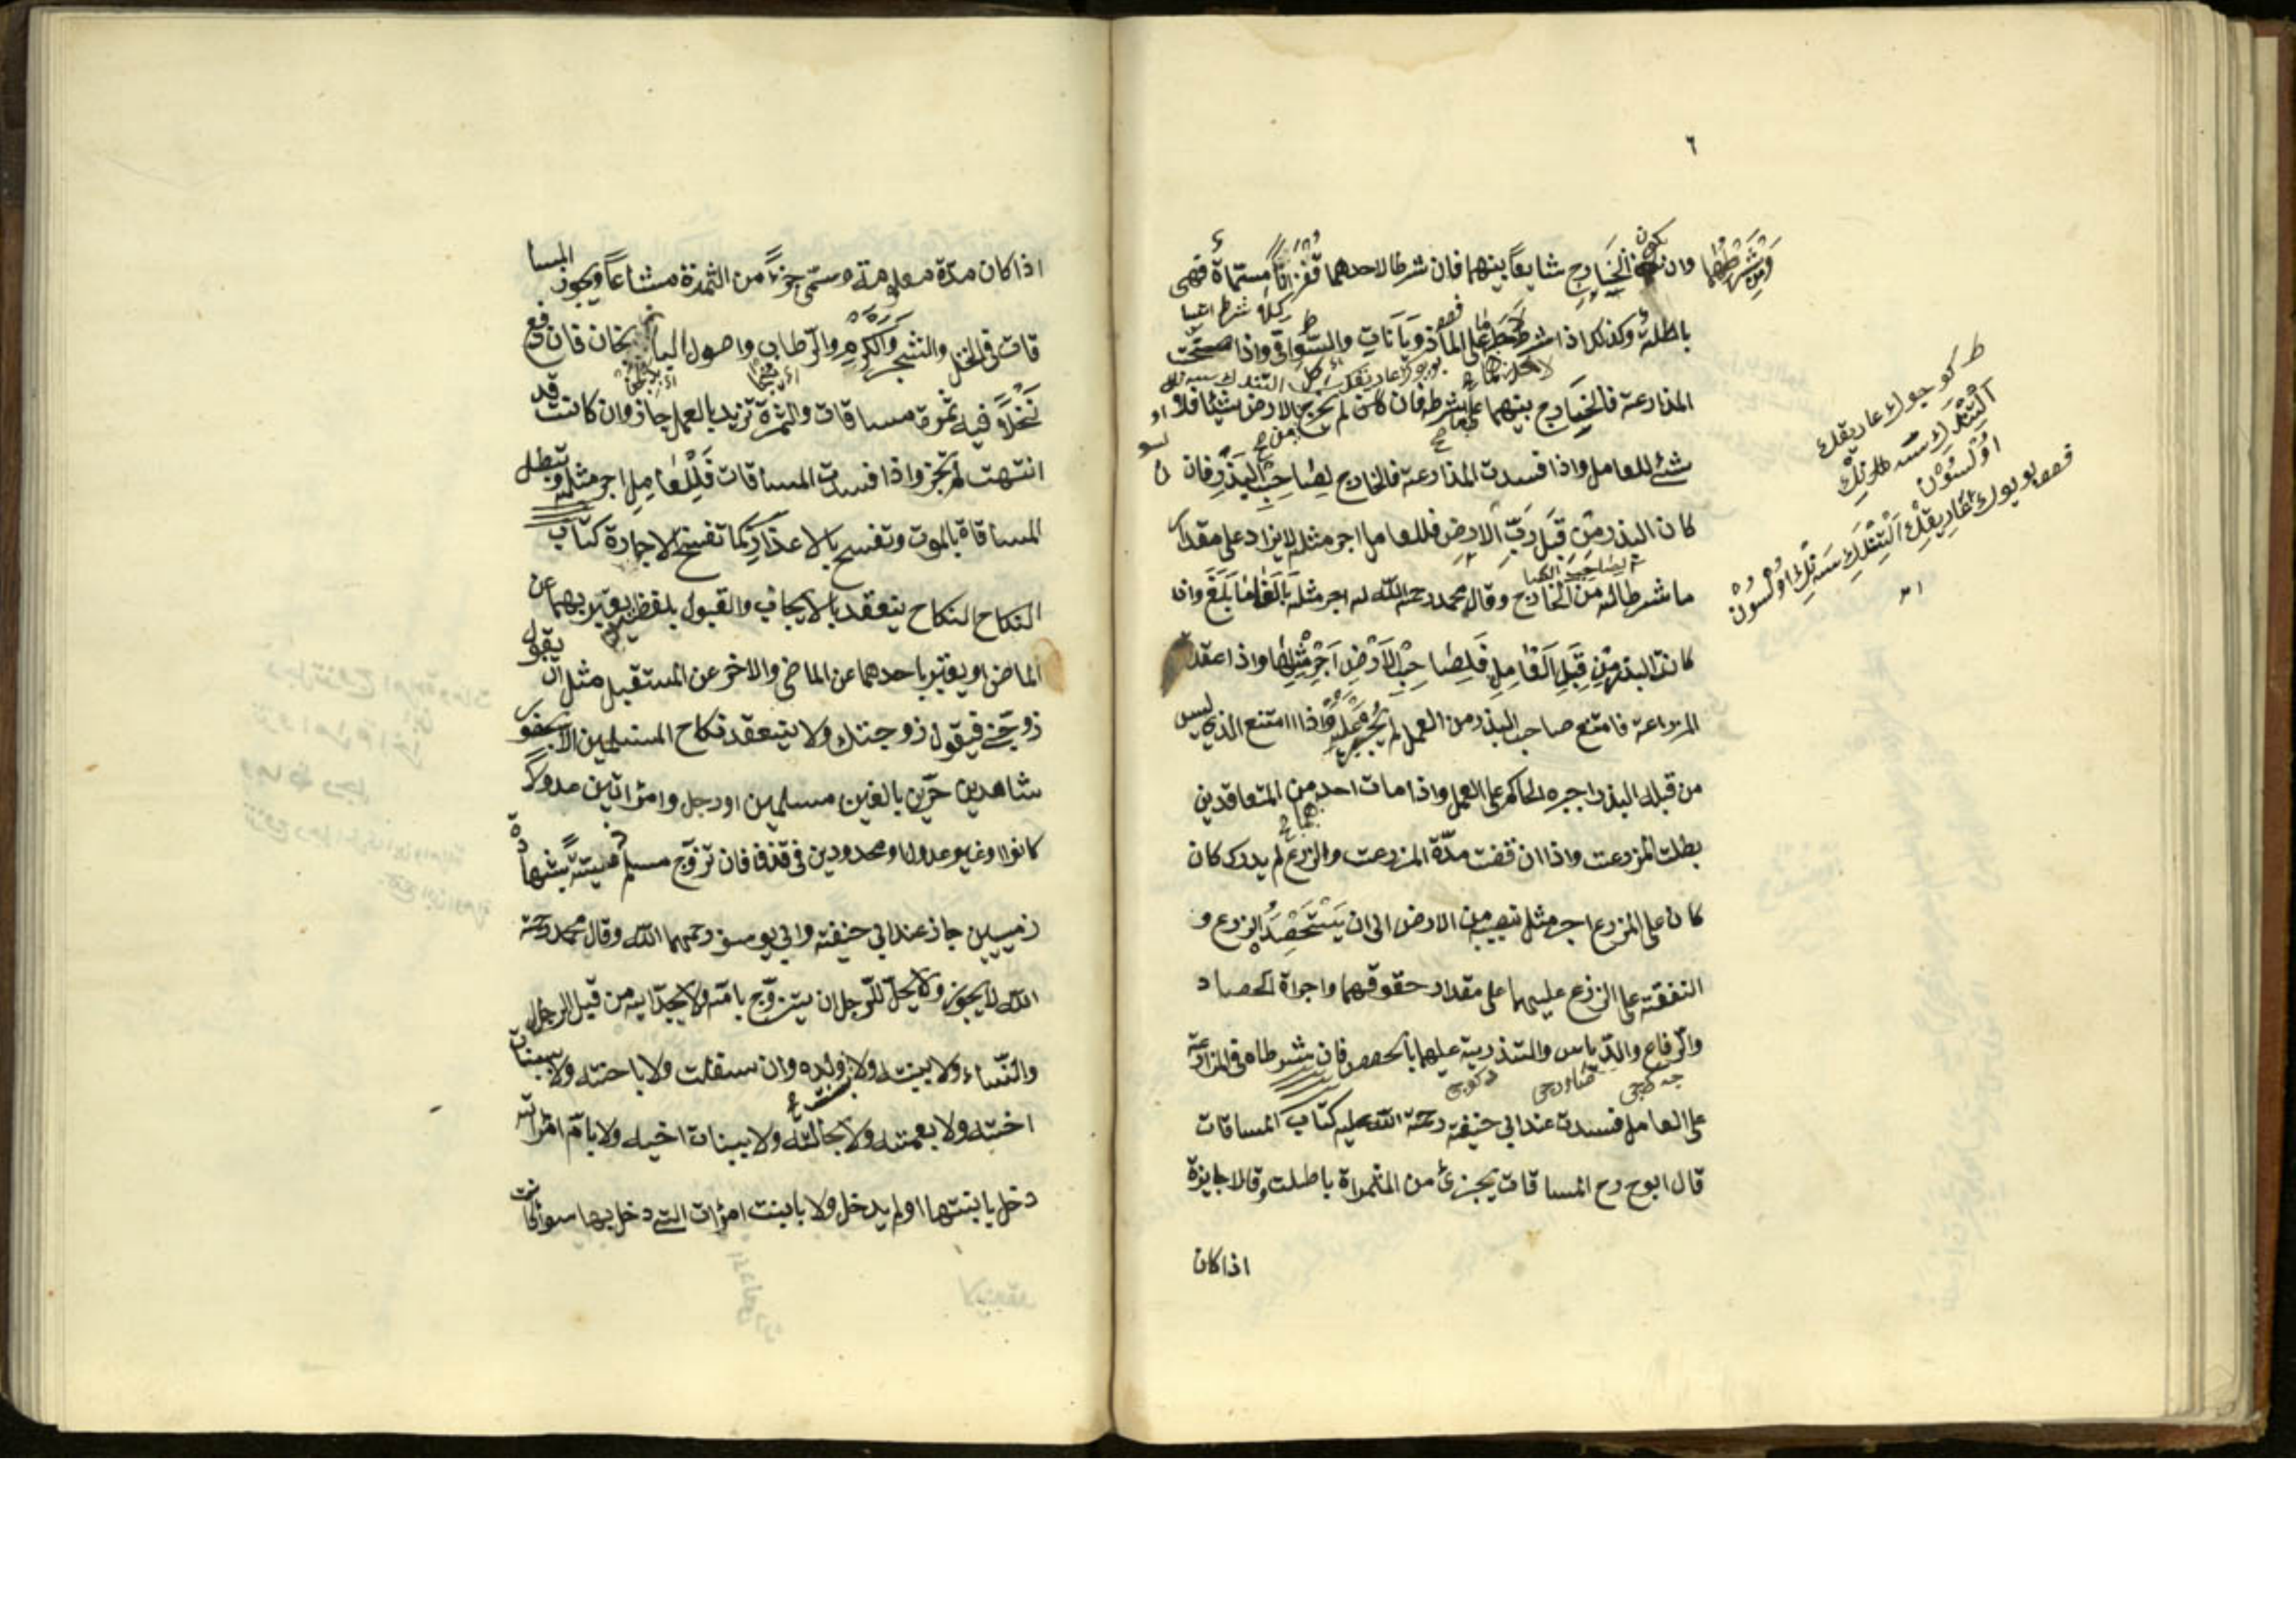 ٦
ومن شرطها وان يكون الخارج شايعاً بينهما فان شرطا لاحدهما قفزاناً مسمّاة فهى
باطلة وكذلك اذا شرط ما على الماذويانات والسّواقى واذا صحّت
المذارعة فالخارج بينهما على الشرط فان لم يخرج الارض شيئا فلا
شئ للعامل واذا فسدت المذارعة فالخارج لصاحب البذر فان
كان البذر من قبل ربّ الارض فللعامل اجر مثله لايزاد على مقدار
ما شرط له من الخارج وقال محمد رحمة الله له اجر مثله بالغا ما بلغ وان
كان البذر من قبل العامل فلصاحب الارض اجر مثلها واذا عقد
المزراعة فامتنع صاحب البذر من العمل لم يجبر عليه واذا امتنع الذى ليس
من قبله البذر اجبره الحاكم على العمل واذا مات احد من المتعاقدين
بطلت المزرعت واذا ان قضت مدّة المزرعت والزرع لم يدرك كان
كان على المزرع اجر مثل نصيبه من الارض الى ان يستحصد الزرع و
النفقة على الزرع عليهما على مقدار حقوقهما واجراة الحصاد
والرفاع والدّياس والتذرية عليهما بالحصص فان شرطاه فى المزارعة
على العامل فسدت عند ابى حنيفة رحمة الله عليه كتاب المساقات
قال ابوح رح المساقات بجزئ من الثمراة باطلت وقالا جايزة
اذا كان
اذا كان مدّة معلومة وسمّى جزءً من الثمرة مشاعاً ويجوز المسا
قات فى النخل والشجر والكرم والرّطاب واصول الباذنجان فان دفع
نخلاً فيه ثمرة مساقات والثمرة تزيد بالعمل جاز وان كانت قد
انتهت لم تجز واذا فسدت المساقات فللعامل اجر مثله وتبطل
المساقاة بالموت وتفسح بالاعذار كما تفسخ الاجارة كتاب
النكاح النكاح ينعقد بالايجاب والقبول بلفظين يعبّر بهما عن
الماضى او يعبّر باحدهما عن الماضى والاخر عن المستقبل مثل ان يقول
زوجّنى فيقول زوجتك ولا ينعقد نكاح المسلمين الا بحضور
شاهدين حرّين بالغين مسلمين او رجل وامرأتين عدولاً
كانوا او غير عدول او محدودين فى قذف فان تزوّج مسلم ذميّة بشهادة
ذميين جاز عند ابى حنيفة وابى يوسف رحمهما الله وقال محمد رحمة
الله لا يجوز ولا يحلّ للرّجل ان يتزوّج بامّه ولا بجدّاته من قبل الرجل
والنّساء ولا ببنته ولا بنت ولده وان سفلت ولا باخته ولا ببنات
اخته ولا بعمته ولا بخالته ولا ببنات اخيه ولا بامّ امرأته
دخل بابنتها او لم يدخل ولا بابنت امرأت التى دخل بها سوا كانت